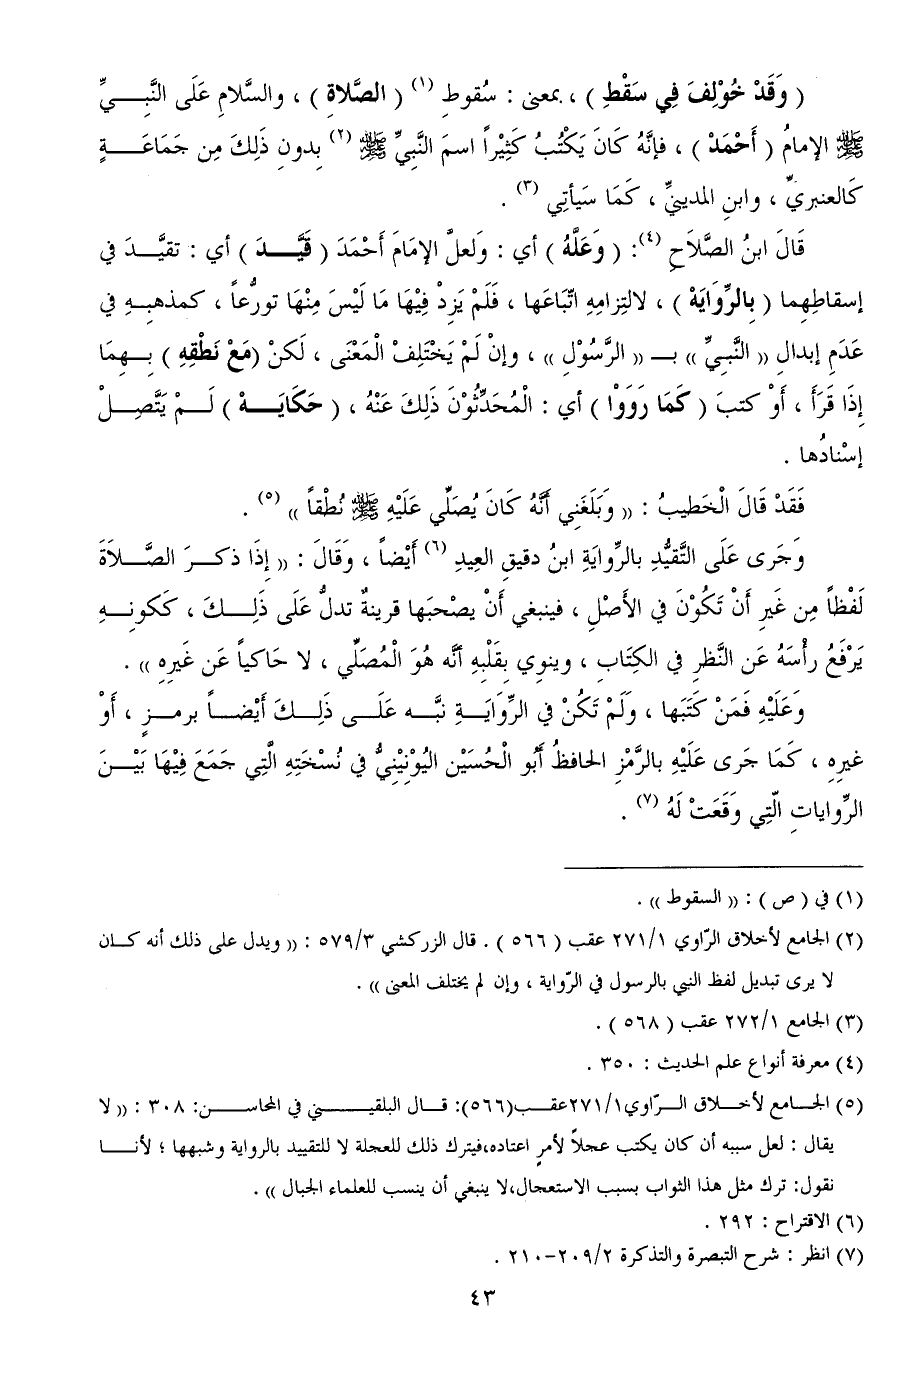 ( وَقَدْ خُوْلِفَ فِي سَقْطِ ) ، بمعنى : سُقوطِ (١) ( الصَّلاةِ ) ، والسَّلامِ عَلَى النَّبِـــيِّ
ﷺ الإمامُ ( أَحْمَدْ ) ، فإنَّهُ كَانَ يَكْتُبُ كَثِيْراً اسمَ النَّبِيِّ ﷺ (٢) بدونِ ذَلِكَ مِن جَمَاعَــةٍ
كَالعنبريِّ ، وابنِ المدينيِّ ، كَمَا سَيأتِي (٣) .
قَالَ ابنُ الصَّلَاحِ (٤): ( وَعَلَّهُ ) أي : وَلعلَّ الإمَامَ أَحْمَدَ ( قَيَّـــدَ ) أي : تقيَّـدَ في
إسقاطِهِما ( بالرِّوَايَهْ ) ، لالتِزامِهِ اتِّبَاعَها ، فَلَمْ يَزِدْ فِيْهَا مَا لَيْسَ مِنْهَا تورُّعاً ، كمذهبِـهِ في
عَدَمِ إبدالِ (( النَّبِيِّ )) بـ (( الرَّسُوْلِ )) ، وإنْ لَمْ يَخْتَلِفْ الْمَعْنَى ، لَكنْ (مَعْ نَطْقِهِ ) بِـهِمَا
إذَا قَرَأَ ، أَوْ كتبَ ( كَمَا رَوَوْا ) أي : الْمُحَدِّثُوْنَ ذَلِكَ عَنْهُ ، ( حَكَايَـــهْ ) لَـمْ يَتَّصِـلْ
إسْنادُها .
فَقَدْ قَالَ الْخَطيبُ : (( وَبَلَغَنِي أَنَّهُ كَانَ يُصَلِّي عَلَيْهِ ﷺ نُطْقاً )) (٥) .
وَجَرى عَلَى التَّقيُّدِ بالرِّوايةِ ابنُ دقيقِ العيدِ (٦) أَيْضاً ، وَقَالَ : (( إذَا ذكـرَ الصَّـلَاةَ
لَفْظاً مِن غَيرِ أَنْ تَكُوْنَ في الأصْلِ ، فينبغي أَنْ يصْحبَها قرينةٌ تدلُّ عَلَى ذَلِــكَ ، ككونِــهِ
يَرْفَعُ رأْسَهُ عَن النَّظرِ في الكِتَابِ ، وينوي بقَلْبِهِ أنَّه هُوَ الْمُصَلِّي ، لا حَاكياً عَن غَيرِهِ )) .
وَعَلَيْهِ فَمَنْ كَتَبَها ، وَلَمْ تَكُنْ في الرِّوَايَـةِ نبَّـه عَلَــى ذَلِــكَ أَيْضــاً برمـزٍ ، أَوْ
غيرِهِ ، كَمَا جَرى عَلَيْهِ بالرَّمْزِ الحَافظُ أَبُو الْحُسَيْنِ اليُوْنِيْنِيُّ في نُسْخَتِهِ الَّتِي جَمَعَ فِيْهَا بَيْـنَ
الرِّواياتِ الَّتِي وَقَعَتْ لَهُ (٧) .
(١) في ( ص ) : (( السقوط )) .
(٢) الجامع لأخلاق الرّاوي ٢٧١/١ عقب ( ٥٦٦ ) . قال الزركشي ٥٧٩/٣ : (( ويدل على ذلك أنه كـان
لا يرى تبديل لفظ النبي بالرسول في الرّواية ، وإن لم يختلف المعنى )) .
(٣) الجامع ٢٧٢/١ عقب ( ٥٦٨ ) .
(٤) معرفة أنواع علم الحديث : ٣٥٠ .
(٥) الجـامع لأخـلاق الـرّاوي٢٧١/١عقـب(٥٦٦): قـال البلقيـــني في المحاســن: ٣٠٨ : (( لا
يقال : لعل سببه أن كان يكتب عجلاً لأمرٍ اعتاده،فيترك ذلك للعجلة لا للتقييد بالرواية وشبهها ؛ لأنــا
نقول: ترك مثل هذا الثواب بسبب الاستعجال،لا ينبغي أن ينسب للعلماء الجبال )) .
(٦) الاقتراح : ٢٩٢ .
(٧) انظر : شرح التبصرة والتذكرة ٢٠٩/٢-٢١٠ .
٤٣